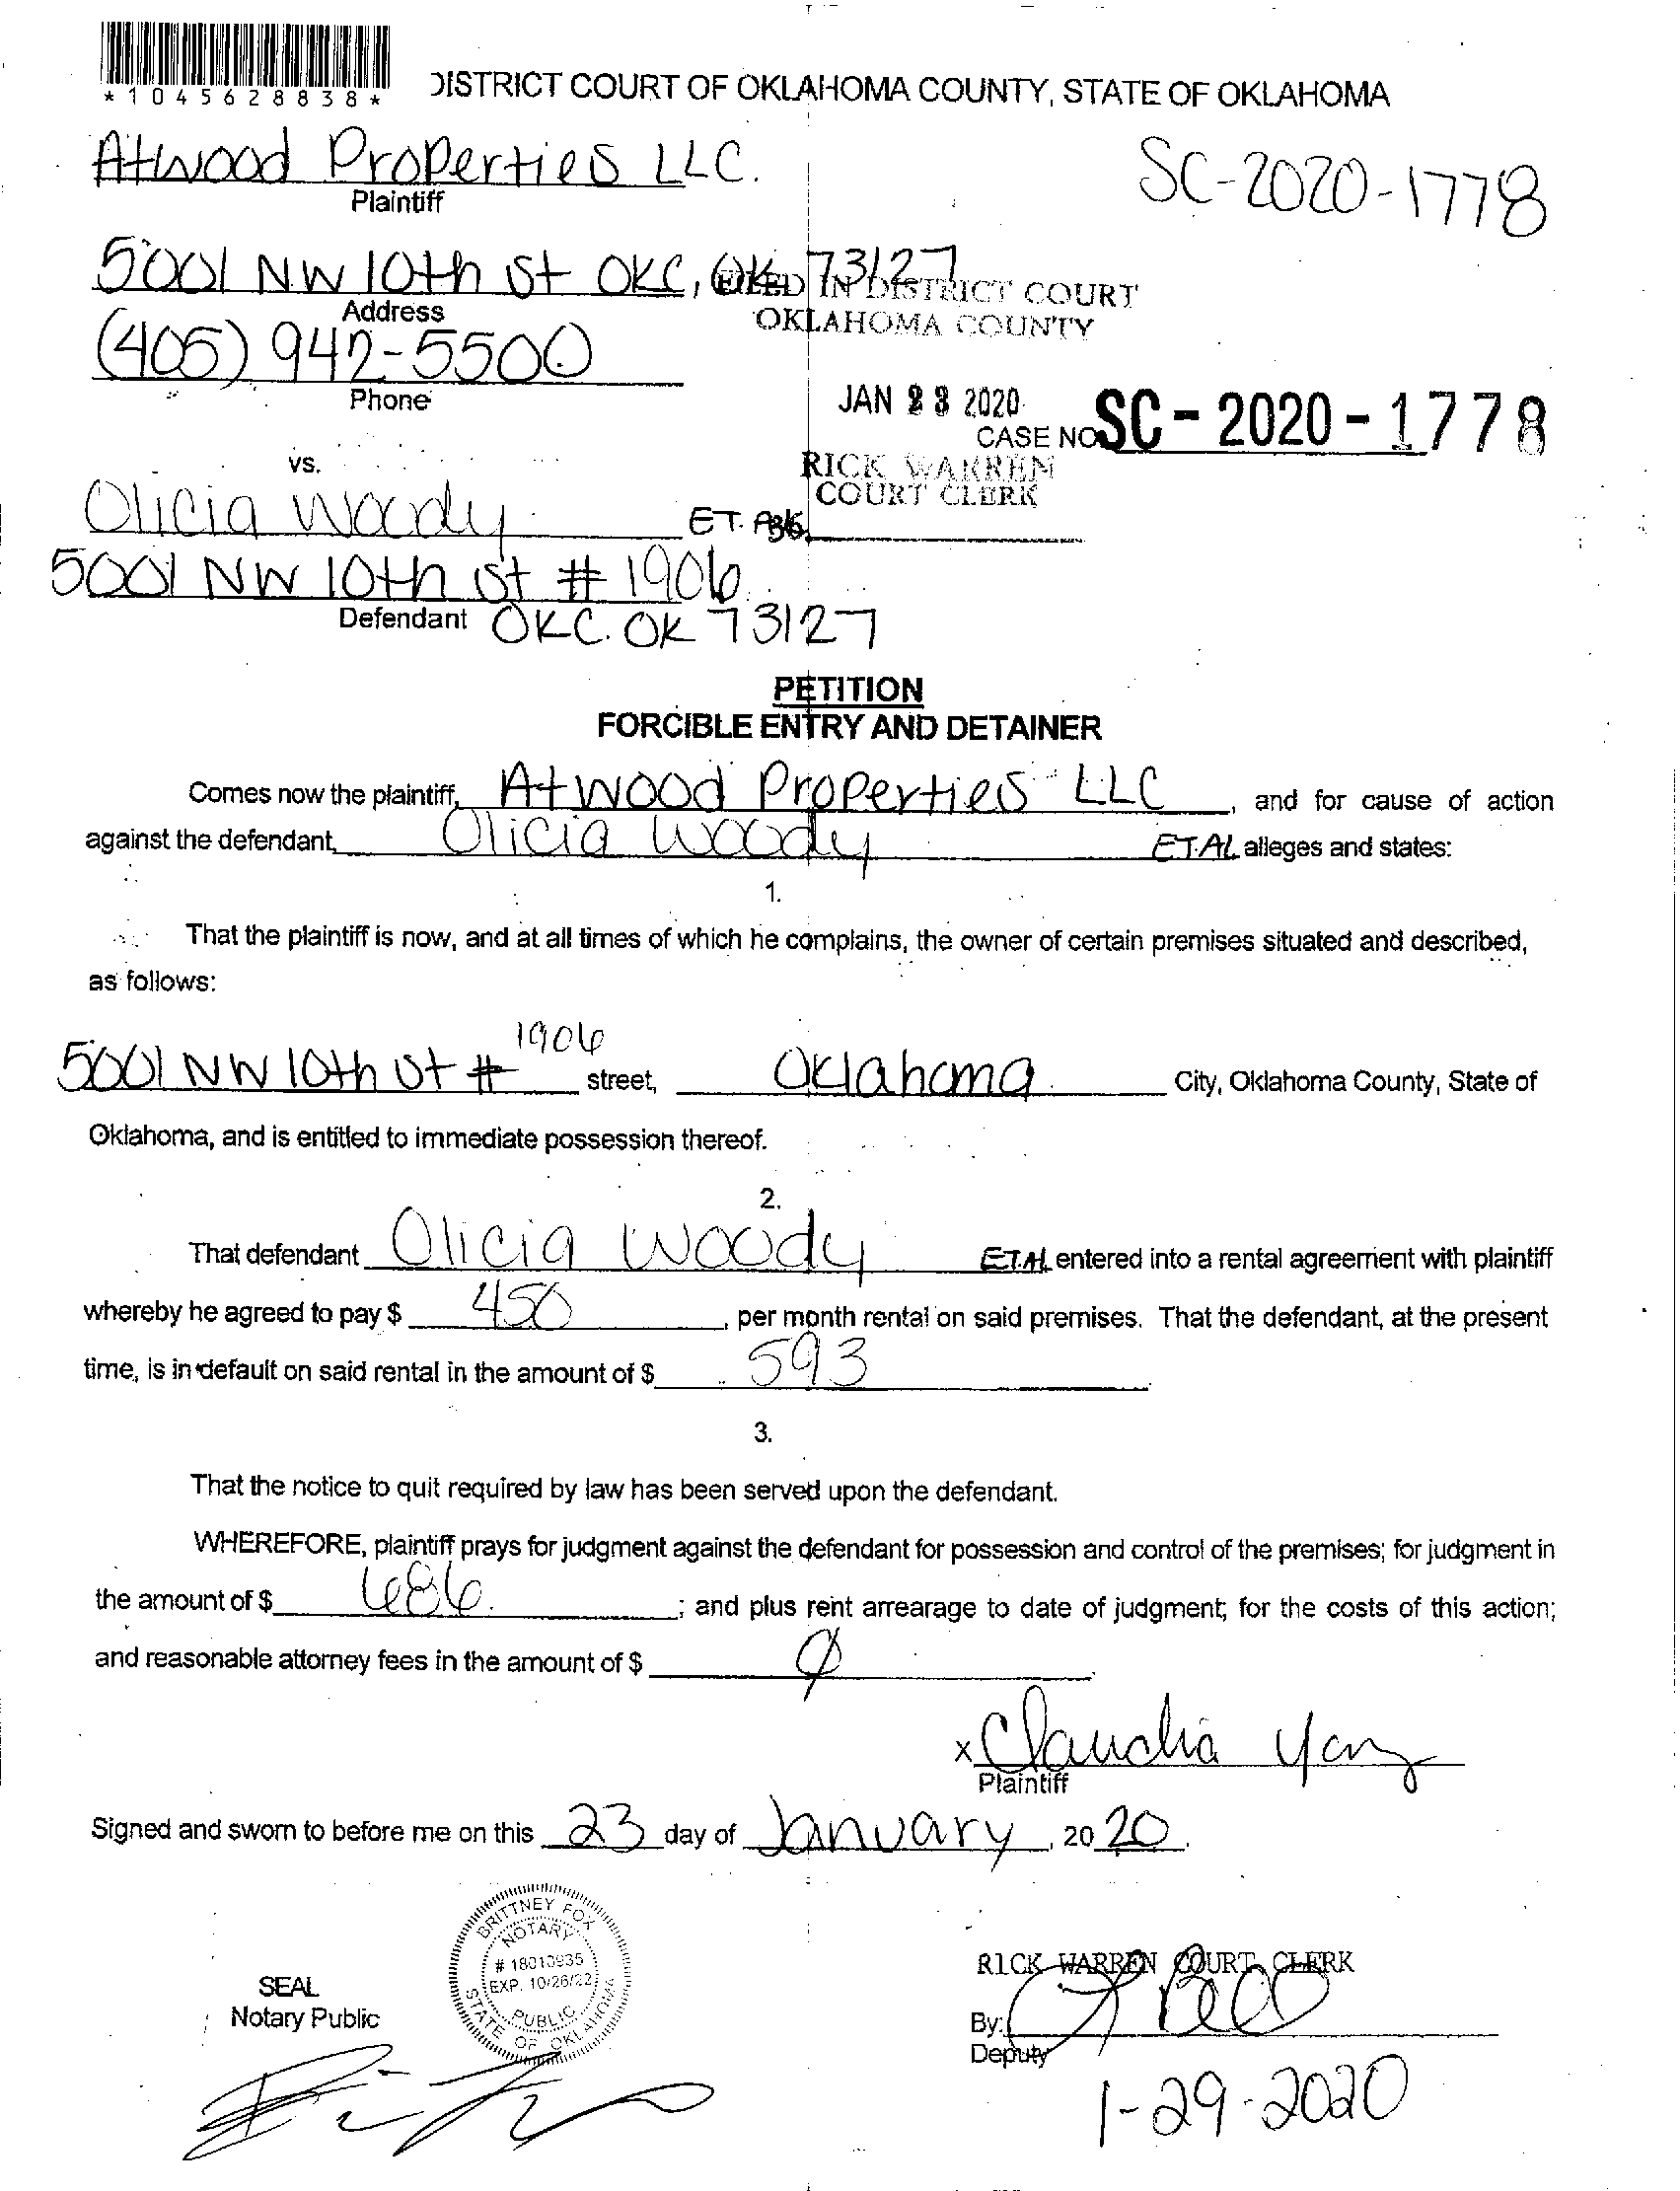 *1045628838*
DISTRICT COURT OF OKLAHOMA COUNTY, STATE OF OKLAHOMA
Atwood Properties LLC.
Plaintiff
SC-2020-1778
5001 NW 10th St OKC, OK 73127
Address
FILED IN DISTRICT COURT
OKLAHOMA COUNTY
(405) 942-5500
Phone
JAN 23 2020
CASE NO SC-2020-1778
RICK WARREN
COURT CLERK
vs.
Olicia Woody ET.
5001 NW 10th St # 1906
Defendant OKC. OK 73127
PETITION
FORCIBLE ENTRY AND DETAINER
Comes now the plaintiff, Atwood Properties LLC, and for cause of action
against the defendant, Olicia Woody ET.AL alleges and states:
1.
That the plaintiff is now, and at all times of which he complains, the owner of certain premises situated and described,
as follows:
5001 NW 10th St # 1906 street, Oklahoma City, Oklahoma County, State of
Oklahoma, and is entitled to immediate possession thereof.
2.
That defendant Olicia Woody ET.AL entered into a rental agreement with plaintiff
whereby he agreed to pay $ 450, per month rental on said premises. That the defendant, at the present
time, is in default on said rental in the amount of $ 593
3.
That the notice to quit required by law has been served upon the defendant.
WHEREFORE, plaintiff prays for judgment against the defendant for possession and control of the premises; for judgment in
the amount of $ 686. ; and plus rent arrearage to date of judgment; for the costs of this action;
and reasonable attorney fees in the amount of $ Ø
x Claudia
Plaintiff
Signed and sworn to before me on this 23 day of January, 20 20.
BRITTNEY FOX
NOTARY
# 18010935
EXP. 10/26/22
PUBLIC
STATE OF OKLAHOMA
SEAL
Notary Public
RICK WARREN COURT CLERK
By:
Deputy
1-29-2020